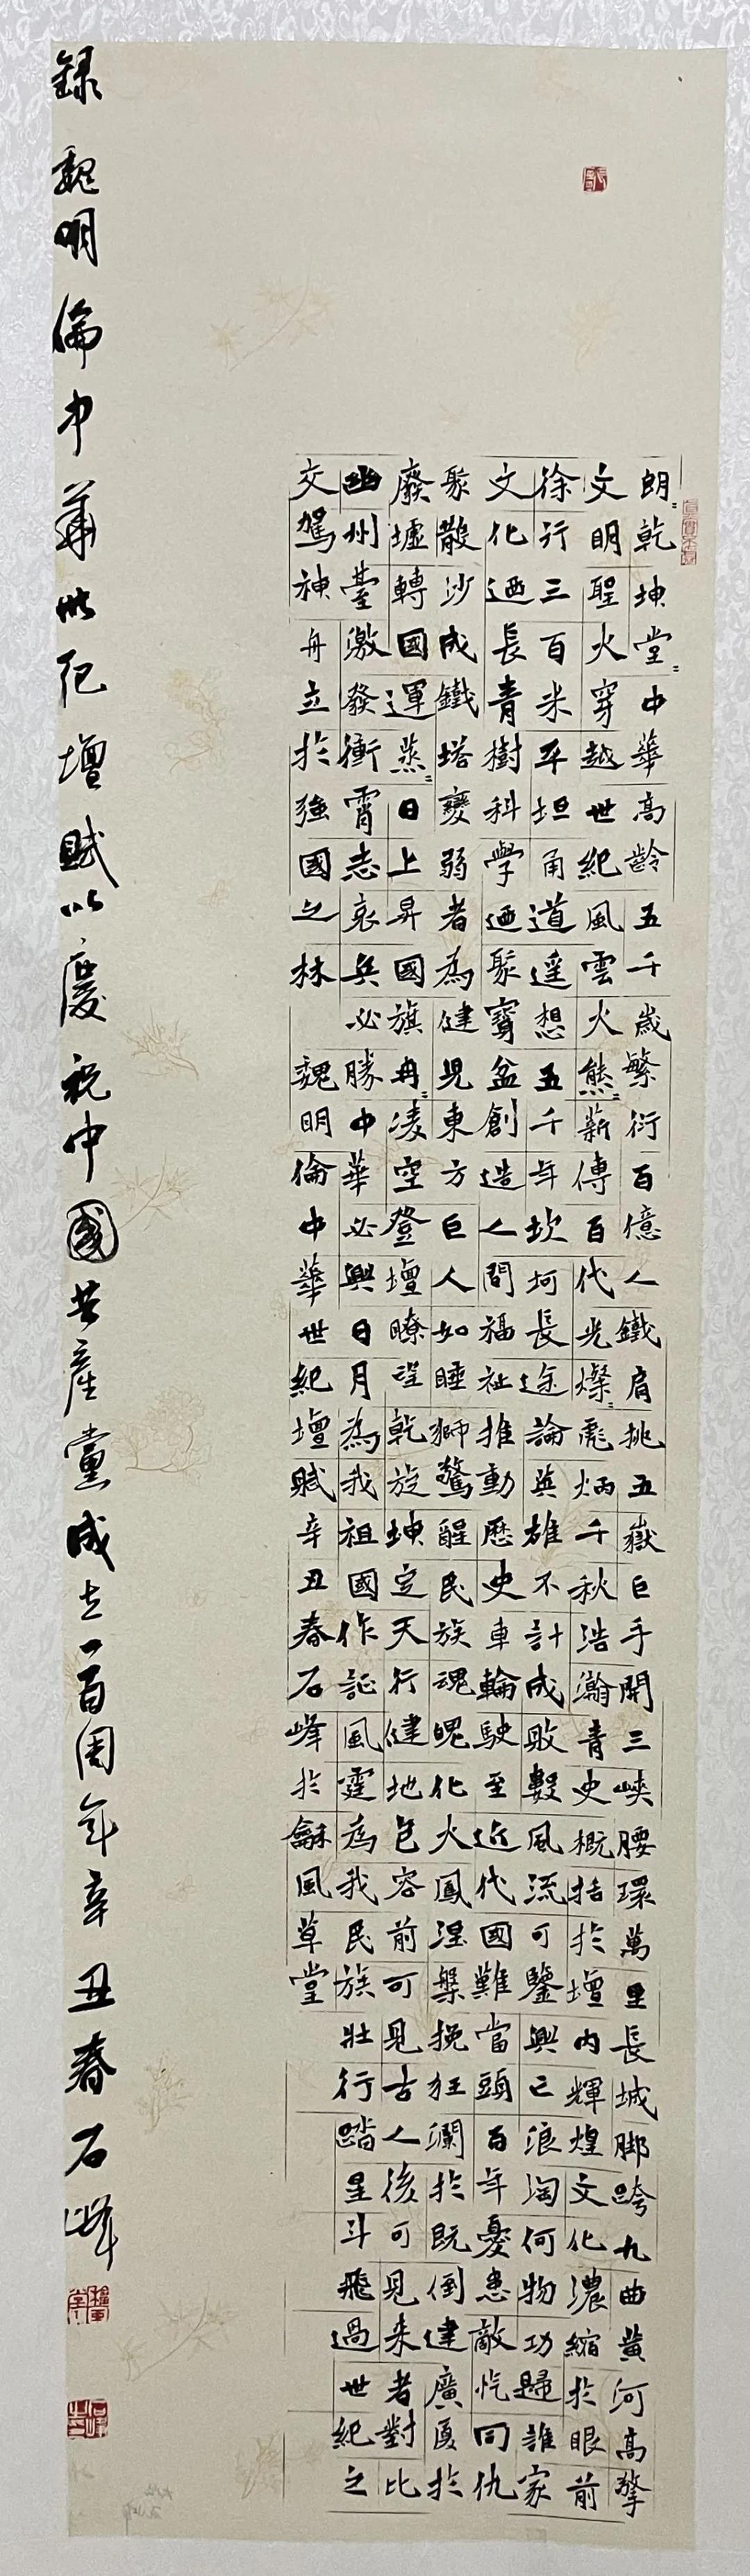 朗〻乾坤堂〻中華高齡五千歲繁衍百億人鐵肩挑五嶽巨手開三峽腰環萬里長城腳跨九曲黃河高擎
文明聖火穿越世紀風雲火熊〻薪傳百代光燦〻彪炳千秋浩瀚青史概括於壇內輝煌文化濃縮於眼前
徐行三百米平坦甬道遥想五千年坎坷長途論英雄不計成敗數風流可鑒興亡浪淘何物功歸誰家
文化迺長青樹科學迺聚寶盆創造人間福祉推動歷史車輪駛至近代國難當頭百年憂患敵愾同仇
聚散沙成鐵塔變弱者為健兒東方巨人如睡獅驚醒民族魂魄化火鳳涅槃挽狂瀾於既倒建廣廈於
廢墟轉國運蒸〻日上昇國旗冉〻凌空登壇瞭望乾旋坤定天行健地包容前可見古人後可見来者對比
幽州臺激發衝霄志哀兵必勝中華必興日月為我祖國作証風霆為我民族壯行踏星斗飛過世紀之
交駕神舟立於強國之林 魏明倫中華世紀壇賦辛丑春石峰於龢風草堂
録魏明倫中華世紀壇賦以慶祝中國共産黨成立一百周年辛丑春石峰